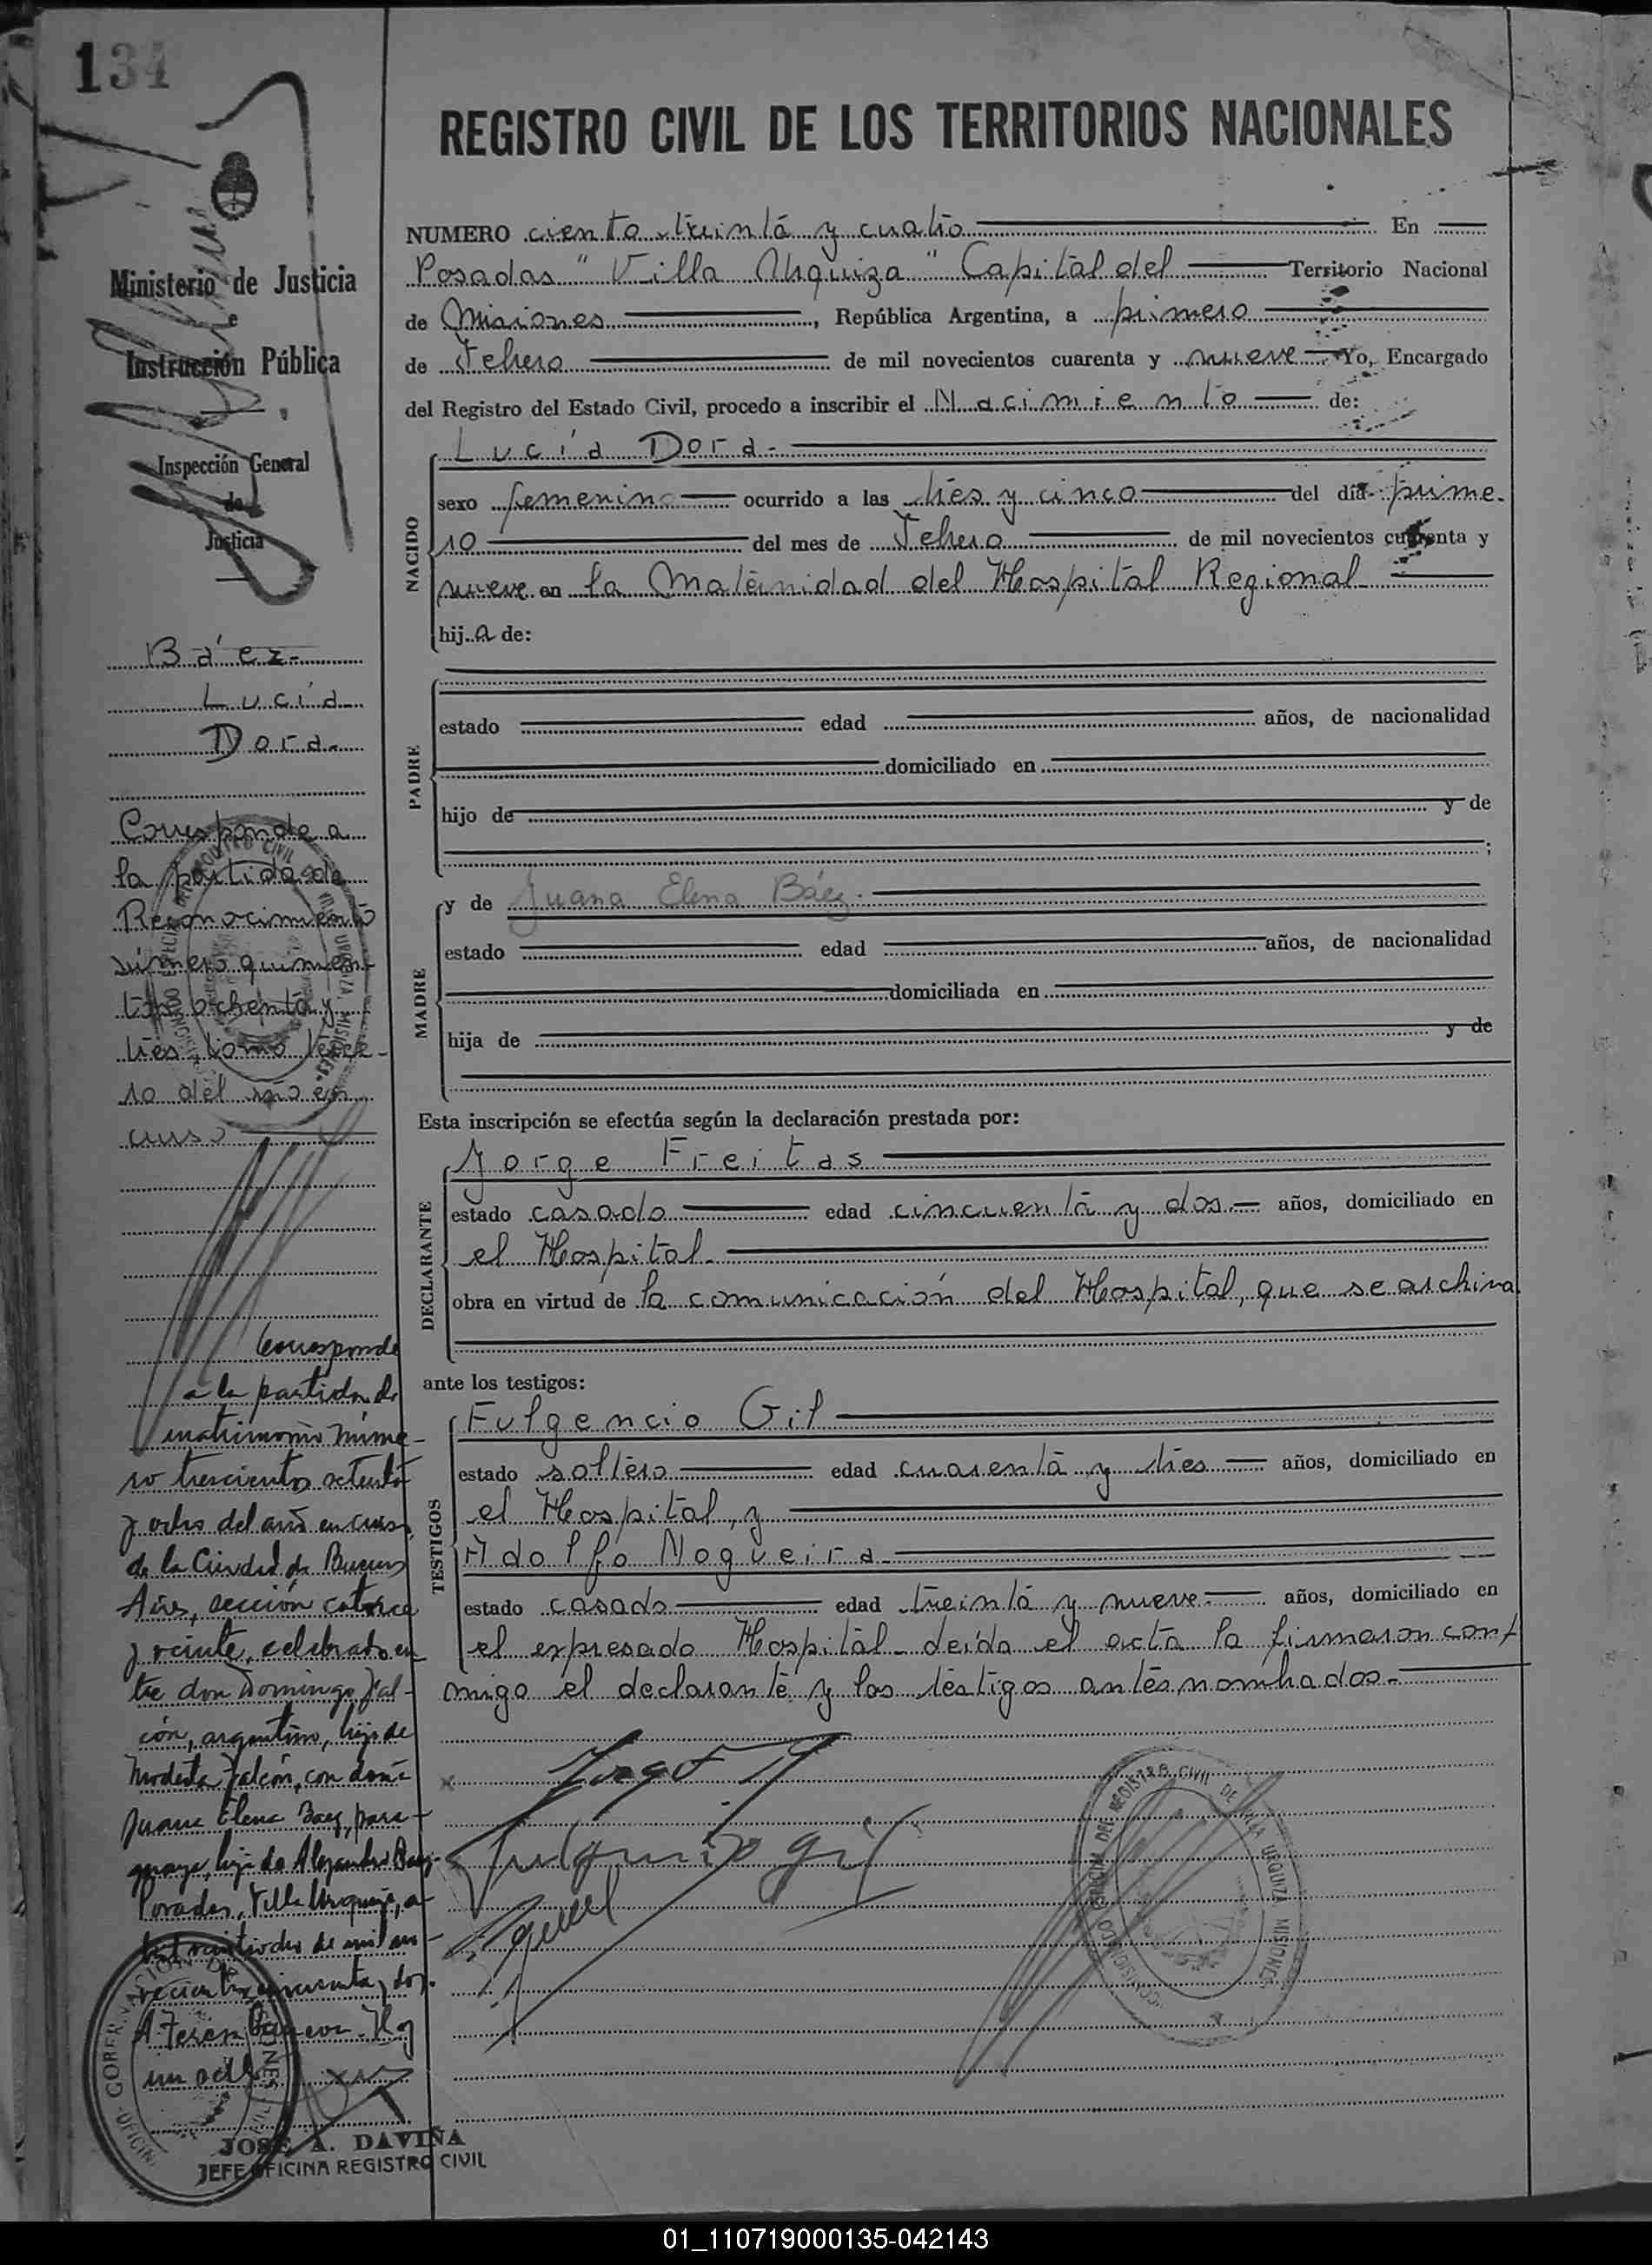 134
REGISTRO CIVIL DE LOS TERRITORIOS NACIONALES
Ministerio de Justicia
Instrucción Pública
Inspección General
de
Justicia
Báez
Lucía
Dora.
Corresponde a
la partida de
Reconocimiento
número quinien-
tos ochenta y
tres tomo terce-
ro del año en
curso
Corresponde
a la partida de
matrimonio núme-
ro trescientos octenta
y ocho del año en curso
de la Ciudad de Buenos
Aires, sección catorce
y veinte, celebrado en
tre don Domingo Fal-
cón, argentino, hijo de
Modesta Falcón, con doña
Juana Elena Baez, para-
guaya, hija de Alejandro Baez
Posadas, Villa Urquiza, a
veintiocho de mil no-
vecientos cincuenta y dos.
JOSE A. DAVIÑA
JEFE OFICINA REGISTRO CIVIL
NUMERO ciento treinta y cuatro En
Posadas "Villa Urquiza" Capital del Territorio Nacional
de Misiones, República Argentina, a primero
de Febrero de mil novecientos cuarenta y nueve Yo, Encargado
del Registro del Estado Civil, procedo a inscribir el Nacimiento de:
NACIDO
Lucía Dora.
sexo femenino ocurrido a las tres y cinco del día prime-
ro del mes de Febrero de mil novecientos cuarenta y
nueve en la Maternidad del Hospital Regional
hij a de:
PADRE
estado edad años, de nacionalidad
domiciliado en
hijo de y de
;
MADRE
y de Juana Elena Báez.
estado edad años, de nacionalidad
domiciliada en
hija de y de
Esta inscripción se efectúa según la declaración prestada por:
DECLARANTE
Jorge Freitas
estado casado edad cincuenta y dos años, domiciliado en
el Hospital
obra en virtud de la comunicación del Hospital, que se archiva
ante los testigos:
TESTIGOS
Fulgencio Gil
estado soltero edad cuarenta y tres años, domiciliado en
el Hospital, y
Adolfo Nogueira
estado casado edad treinta y nueve años, domiciliado en
el expresado Hospital leída el acta la firmaron con
migo el declarante y los testigos antes nombrados.
01_110719000135-042143